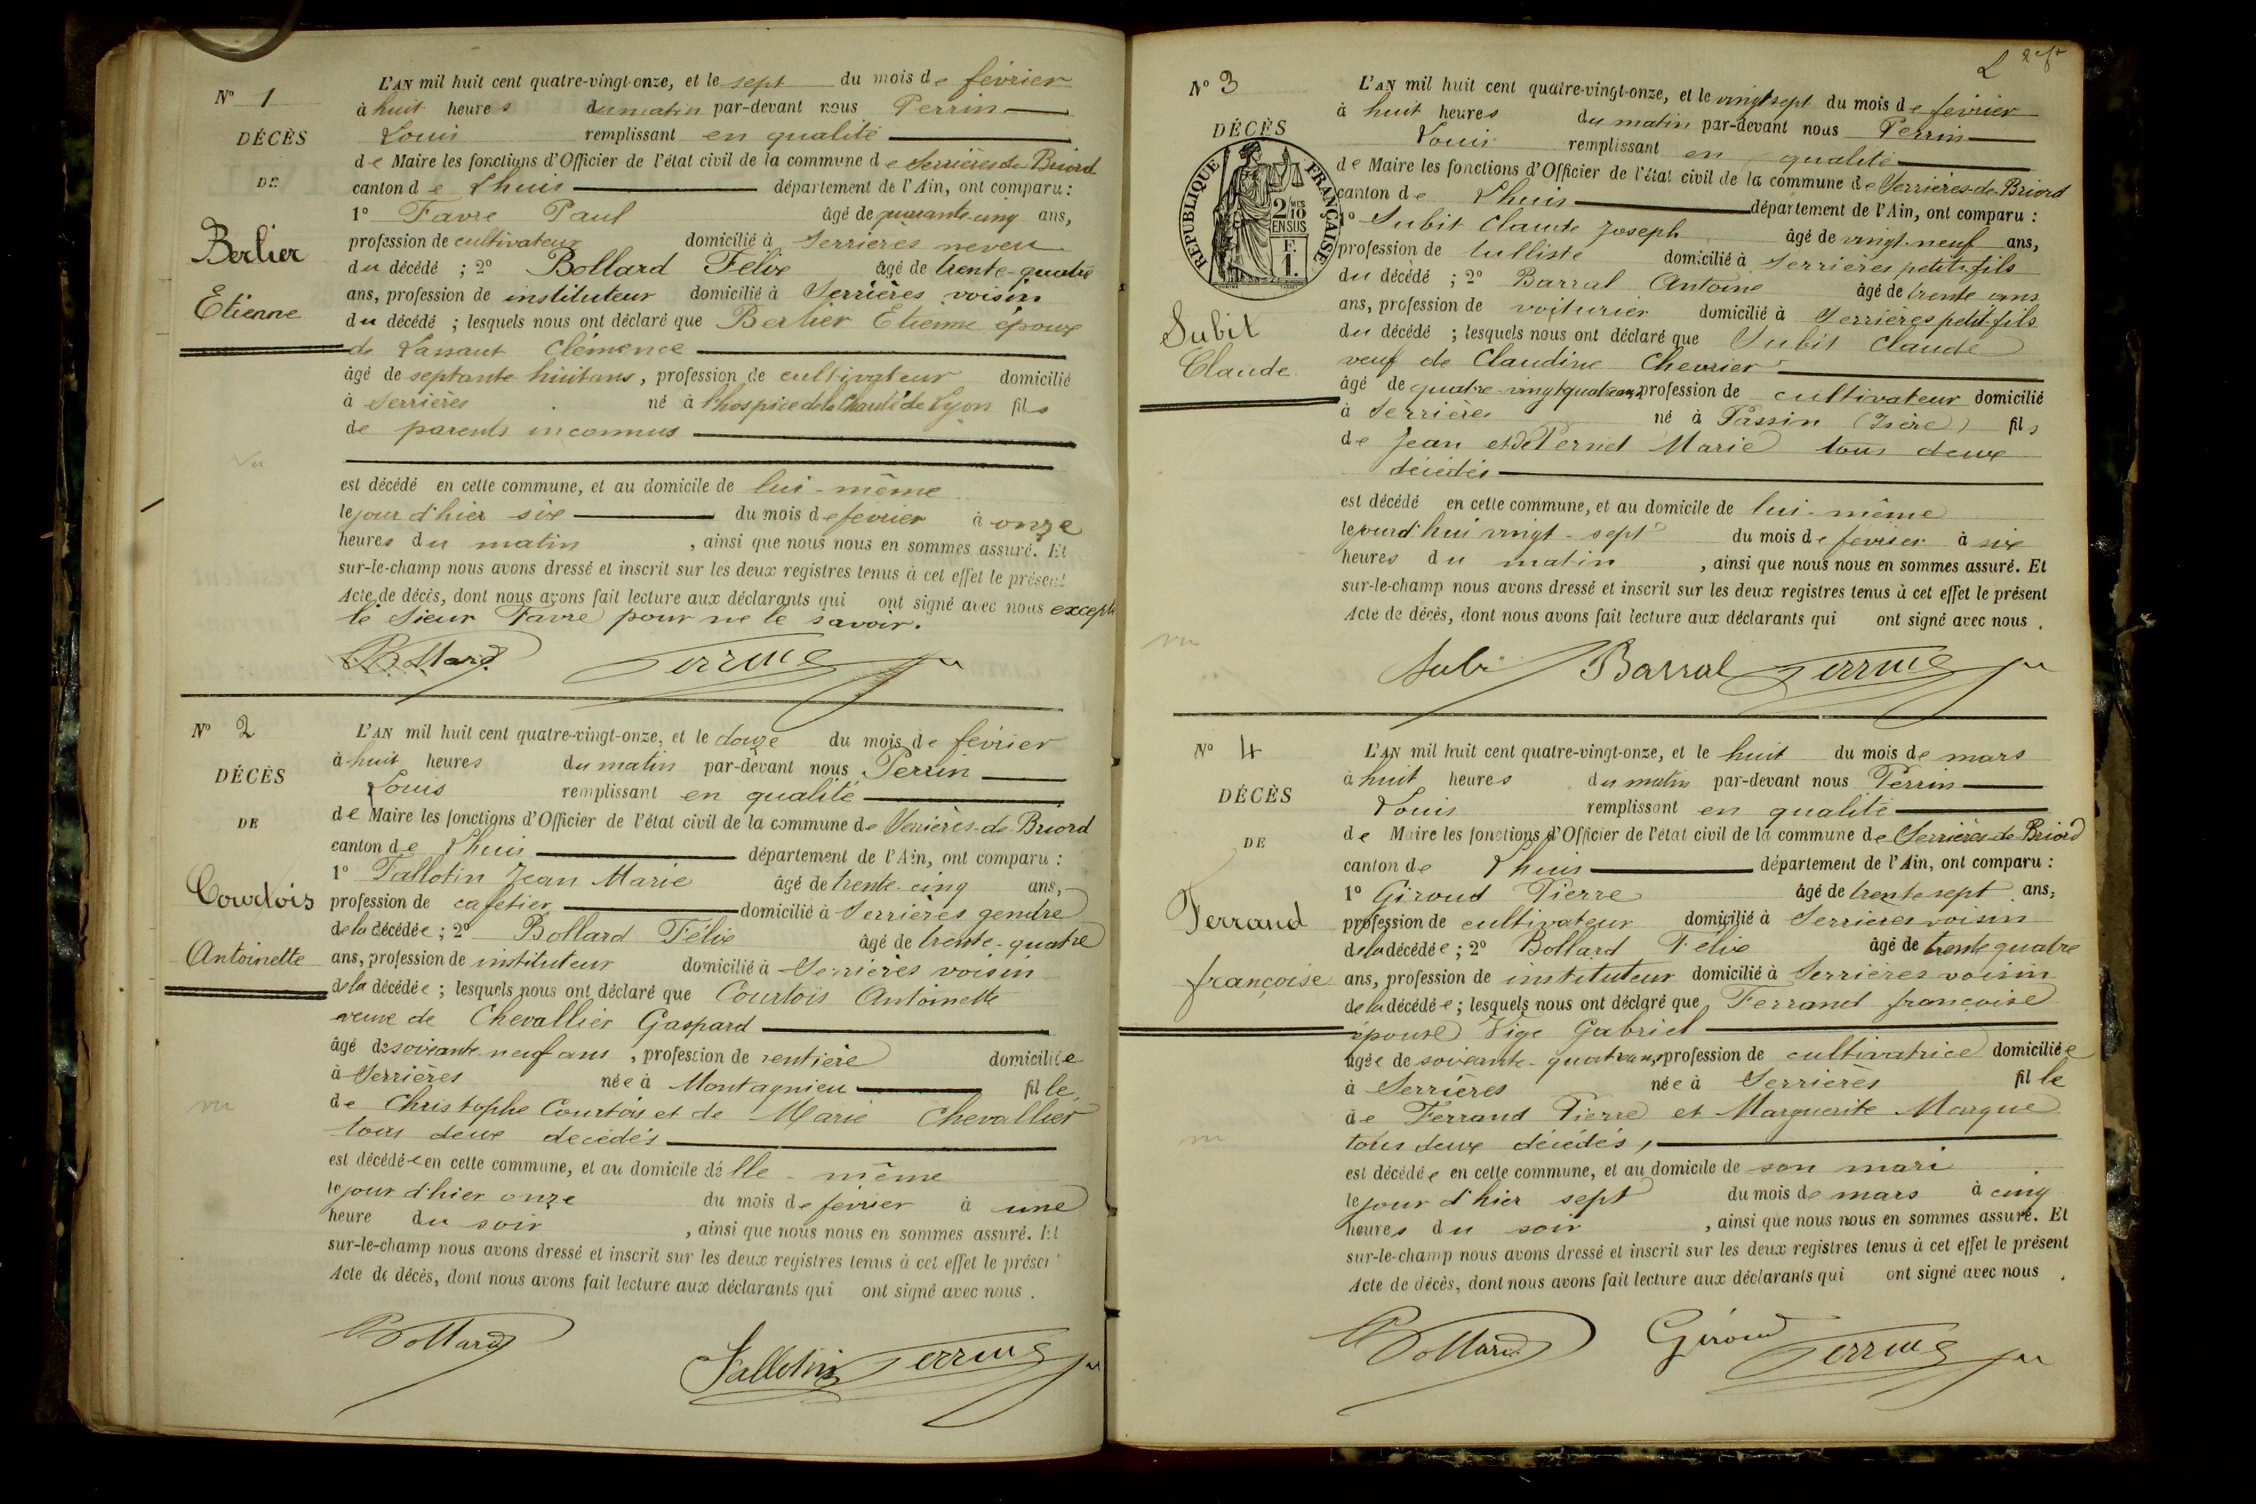 N° 1
DÉCÈS
DE
Berlier
Etienne
L'AN mil huit cent quatre-vingt-onze, et le sept du mois de février
à huit heures du matin par-devant nous Perrin
Louis remplissant en qualité
de Maire les fonctions d'Officier de l'état civil de la commune de Serrières-de-Briord
canton de Lhuis département de l'Ain, ont comparu :
1° Favre Paul âgé de quarante-cinq ans,
profession de cultivateur domicilié à Serrières neveu
du décédé ; 2° Bollard Félix âgé de trente-quatre
ans, profession de instituteur domicilié à Serrières voisin
du décédé ; lesquels nous ont déclaré que Berlier Etienne époux
de Vassaut Clémence
âgé de septante huit ans, profession de cultivateur domicilié
à Serrières né à l'hospice de la Charité de Lyon fils
de parents inconnus
vu
est décédé en cette commune, et au domicile de lui-même
le jour d'hier six du mois de février à onze
heures du matin, ainsi que nous nous en sommes assuré. Et
sur-le-champ nous avons dressé et inscrit sur les deux registres tenus à cet effet le présent
Acte de décès, dont nous avons fait lecture aux déclarants qui ont signé avec nous excepté
le Sieur Favre pour ne le savoir.
Bollard Perrin
N° 2
DÉCÈS
DE
Courtois
Antoinette
L'AN mil huit cent quatre-vingt-onze, et le douze du mois de février
à huit heures du matin par-devant nous Perrin
Louis remplissant en qualité
de Maire les fonctions d'Officier de l'état civil de la commune de Serrières-de-Briord
canton de Lhuis département de l'Ain, ont comparu :
1° Tallotin Jean Marie âgé de trente-cinq ans,
profession de cafetier domicilié à Serrières gendre
de la décédée ; 2° Bollard Félix âgé de trente-quatre
ans, profession de instituteur domicilié à Serrières voisin
de la décédée ; lesquels nous ont déclaré que Courtois Antoinette
veuve de Chevallier Gaspard
âgé de soixante-neuf ans, profession de rentière domiciliée
à Serrières née à Montagnieu fille
de Christophe Courtois et de Marie Chevallier
vu
tous deux décédés
est décédée en cette commune, et au domicile d'elle-même
le jour d'hier onze du mois de février à une
heure du soir, ainsi que nous nous en sommes assuré. Et
sur-le-champ nous avons dressé et inscrit sur les deux registres tenus à cet effet le présen
Acte de décès, dont nous avons fait lecture aux déclarants qui ont signé avec nous.
Bollard
Tallotin Perrin
2
N° 3
DÉCÈS
RÉPUBLIQUE FRANÇAISE
2/10 MES
EN SUS
F.
1.
Subit
Claude
L'AN mil huit cent quatre-vingt-onze, et le vingt sept du mois de février
à huit heures du matin par-devant nous Perrin
Louis remplissant en qualité
de Maire les fonctions d'Officier de l'état civil de la commune de Serrières-de-Briord
canton de Lhuis département de l'Ain, ont comparu :
1° Subit Claude Joseph âgé de vingt-neuf ans,
profession de tulliste domicilié à Serrières petit-fils
du décédé ; 2° Barral Antoine âgé de trente ans
ans, profession de voiturier domicilié à Serrières petit-fils
du décédé ; lesquels nous ont déclaré que Subit Claude
veuf de Claudine Chevrier
âgé de quatre-vingt-quatre ans, profession de cultivateur domicilié
à Serrières né à Passin (Isère) fils
de Jean et de Pernet Marie tous deux
décédés
est décédé en cette commune, et au domicile de lui-même
le jourd'hui vingt-sept du mois de février à six
heures du matin, ainsi que nous nous en sommes assuré. Et
sur-le-champ nous avons dressé et inscrit sur les deux registres tenus à cet effet le présent
Acte de décès, dont nous avons fait lecture aux déclarants qui ont signé avec nous.
vu
Subi Barral Perrin
N° 4
DÉCÈS
DE
Ferrand
françoise
L'AN mil huit cent quatre-vingt-onze, et le huit du mois de mars
à huit heures du matin par-devant nous Perrin
Louis remplissant en qualité
de Maire les fonctions d'Officier de l'état civil de la commune de Serrières-de-Briord
canton de Lhuis département de l'Ain, ont comparu :
1° Giroud Pierre âgé de trente sept ans,
profession de cultivateur domicilié à Serrières voisin
de la décédée ; 2° Bollard Félix âgé de trente quatre
ans, profession de instituteur domicilié à Serrières voisin
de la décédée ; lesquels nous ont déclaré que Ferrand françoise
épouse Vige Gabriel
âgée de soixante-quatre ans, profession de cultivatrice domiciliée
à Serrières née à Serrières fille
de Ferrand Pierre et Marguerite Margue
vu
tous deux décédés,
est décédée en cette commune, et au domicile de son mari
le jour d'hier sept du mois de mars à cinq
heures du soir, ainsi que nous nous en sommes assuré. Et
sur-le-champ nous avons dressé et inscrit sur les deux registres tenus à cet effet le présent
Acte de décès, dont nous avons fait lecture aux déclarants qui ont signé avec nous.
Bollard Giroud Perrin